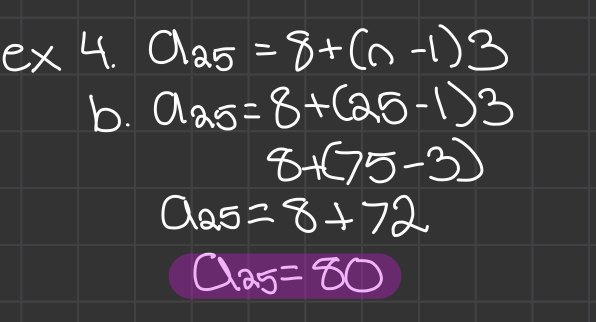 ex 4. a₂₅ = 8+(n-1)3
b. a₂₅ = 8+(25-1)3
8+(75-3)
a₂₅ = 8+72
a₂₅ = 80